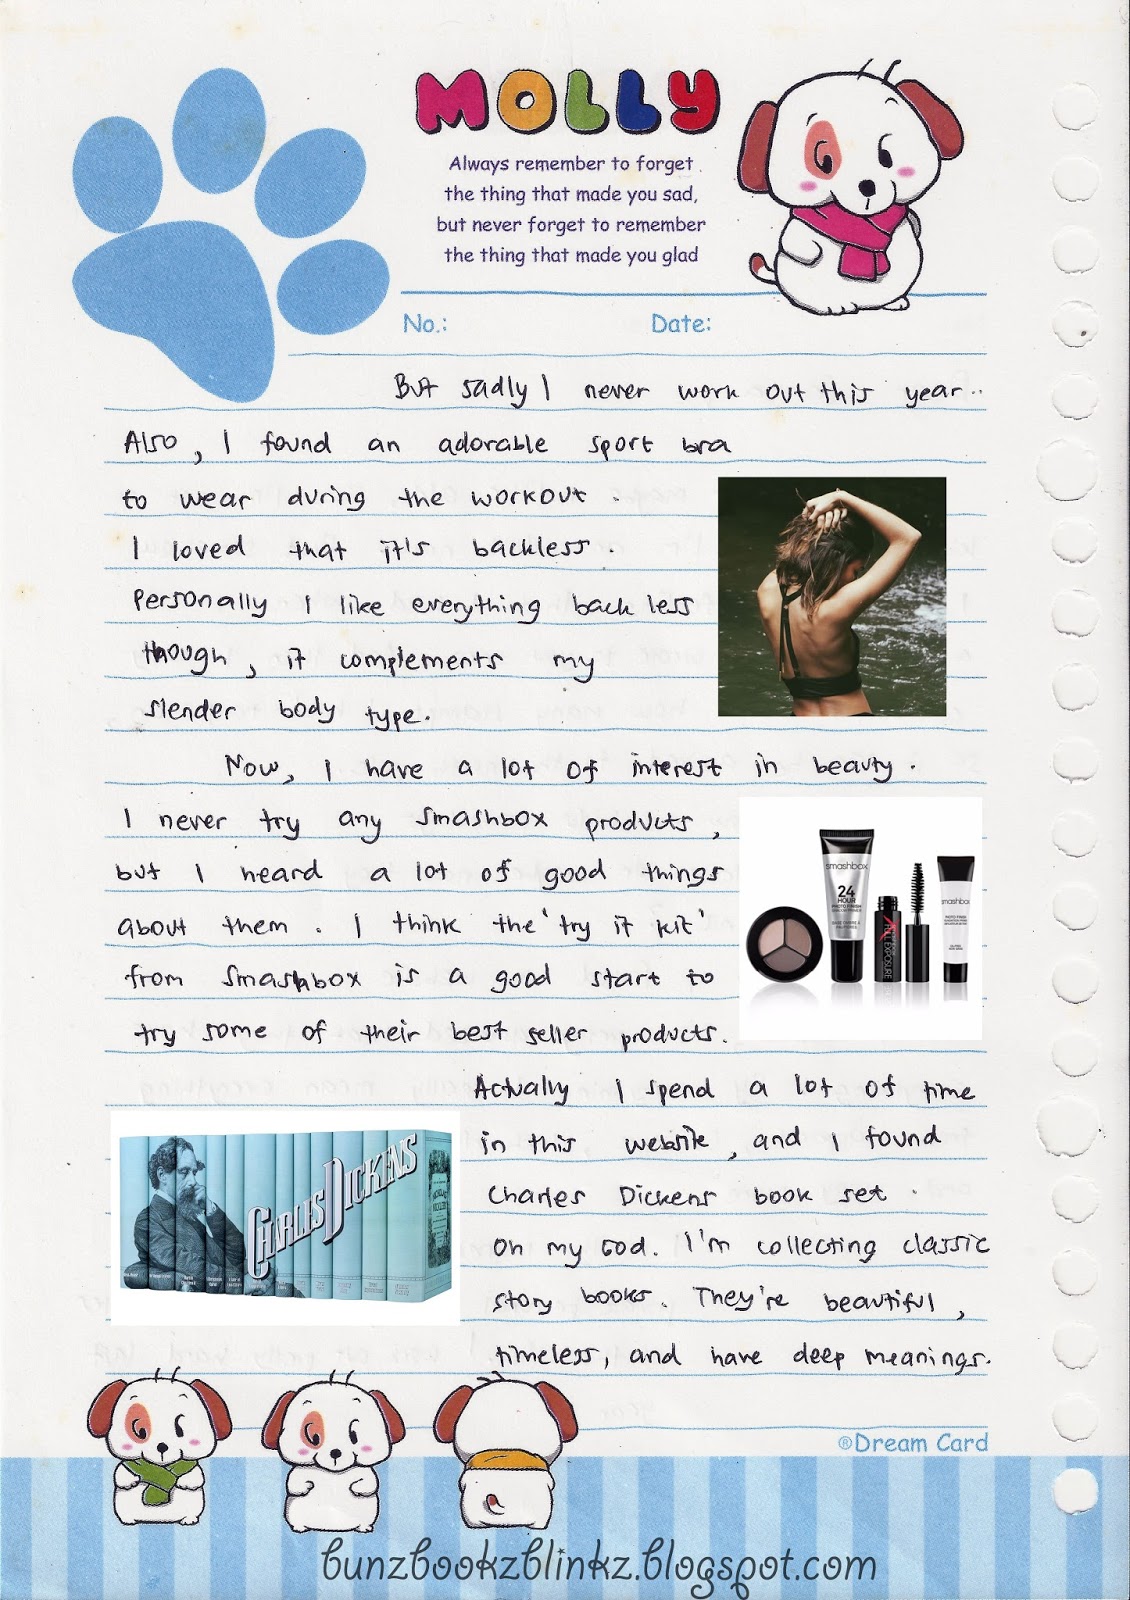 MOLLY
Always remember to forget
the thing that made you sad,
but never forget to remember
the thing that made you glad
No.: Date:
But sadly I never work out this year..
Also, I found an adorable sport bra
to wear during the workout.
I loved that it's backless.
Personally I like everything backless
though, it complements my
slender body type.
Now, I have a lot of interest in beauty.
I never try any smashbox products,
but I heard a lot of good things
about them. I think the 'try it kit'
from smashbox is a good start to
try some of their best seller products.
smashbox
24
HOUR
PHOTO FINISH
FULL EXPOSURE
smashbox
PHOTO FINISH
Actually I spend a lot of time
in this website, and I found
Charles Dickens book set.
Oh my God. I'm collecting classic
story books. They're beautiful,
timeless, and have deep meanings.
CHARLES DICKENS
®Dream Card
bunzbookzblinkz.blogspot.com